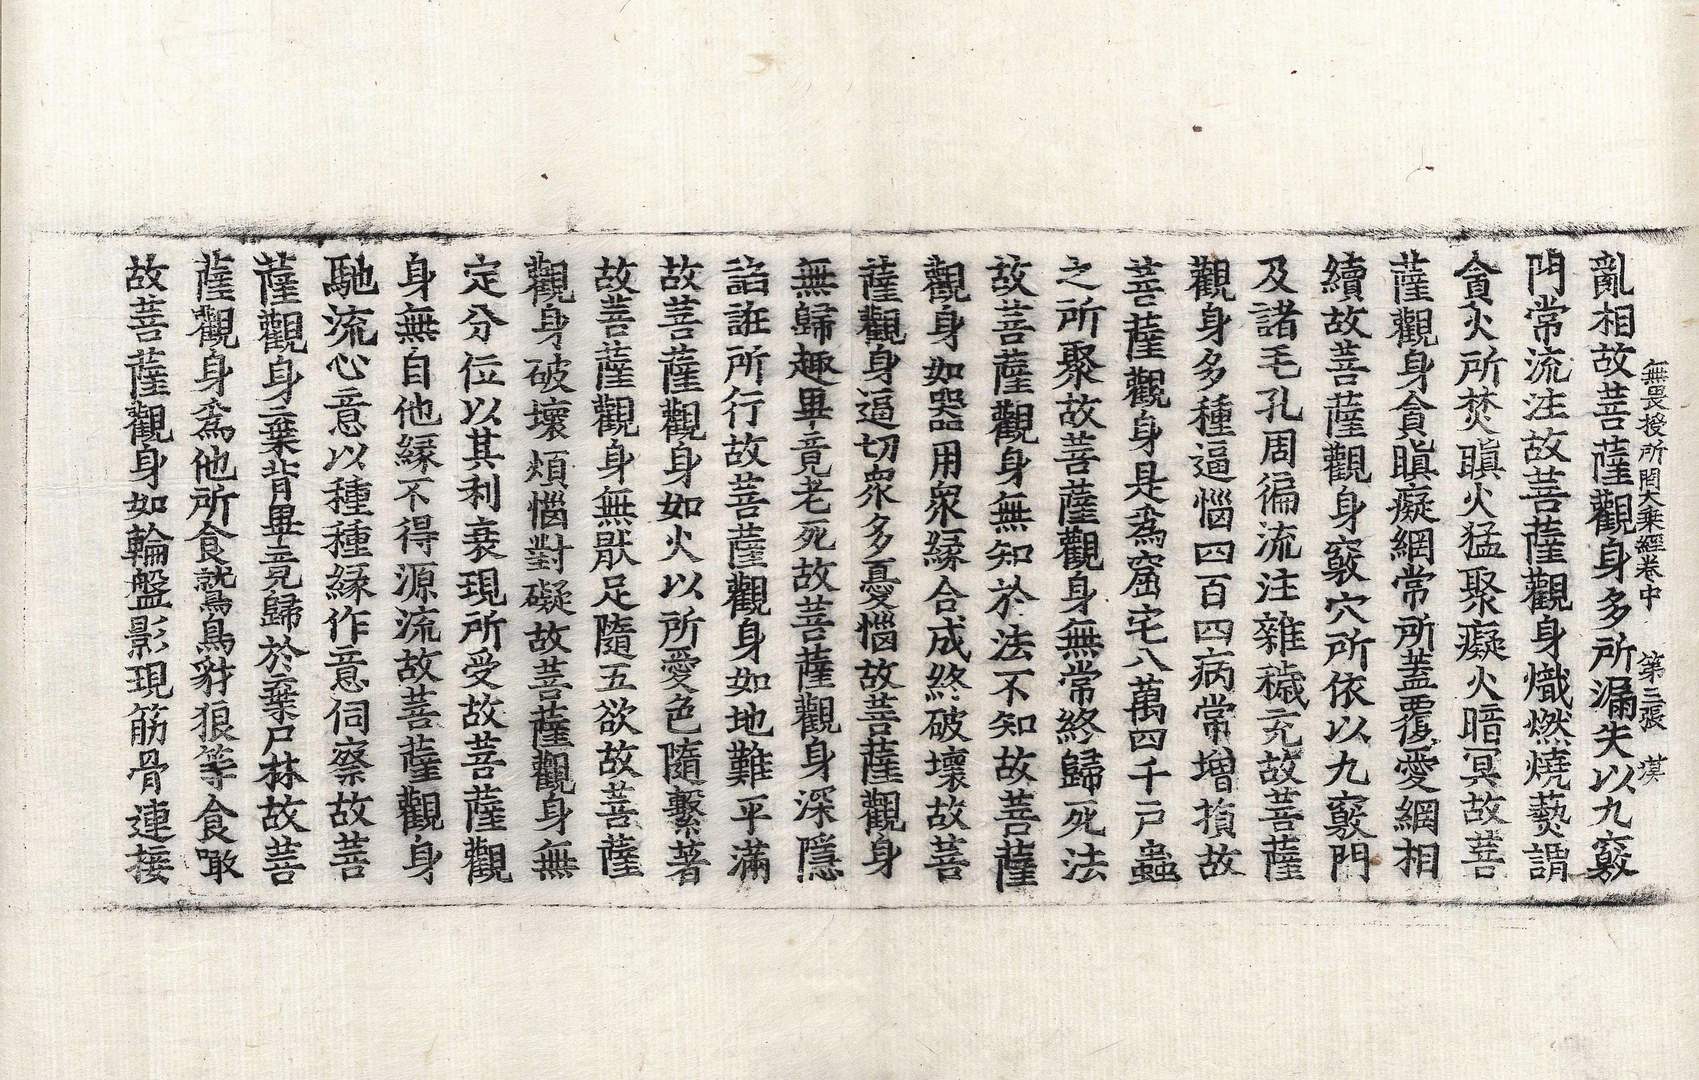 無畏授所問大乘經卷中 第三張 漠
亂相故菩薩觀身多所漏失以九竅
門常流注故菩薩觀身熾燃燒爇謂
貪火所焚瞋火猛聚癡火暗冥故菩
薩觀身貪瞋癡網常所蓋覆愛網相
續故菩薩觀身竅穴所依以九竅門
及諸毛孔周徧流注雜穢充故菩薩
觀身多種逼惱四百四病常增損故
菩薩觀身是爲窟宅八萬四千戶蟲
之所聚故菩薩觀身無常終歸死法
故菩薩觀身無知於法不知故菩薩
觀身如器用衆緣合成終破壞故菩
薩觀身逼切衆多憂惱故菩薩觀身
無歸趣畢竟老死故菩薩觀身深隱
諂誑所行故菩薩觀身如地難平滿
故菩薩觀身如火以所愛色隨繫著
故菩薩觀身無猒足隨五欲故菩薩
觀身破壞煩惱對礙故菩薩觀身無
定分位以其利衰現所受故菩薩觀
身無自他緣不得源流故菩薩觀身
馳流心意以種種緣作意伺察故菩
薩觀身棄背畢竟歸於棄尸林故菩
薩觀身爲他所食鷲鳥豺狼等食噉
故菩薩觀身如輪盤影現筋骨連接